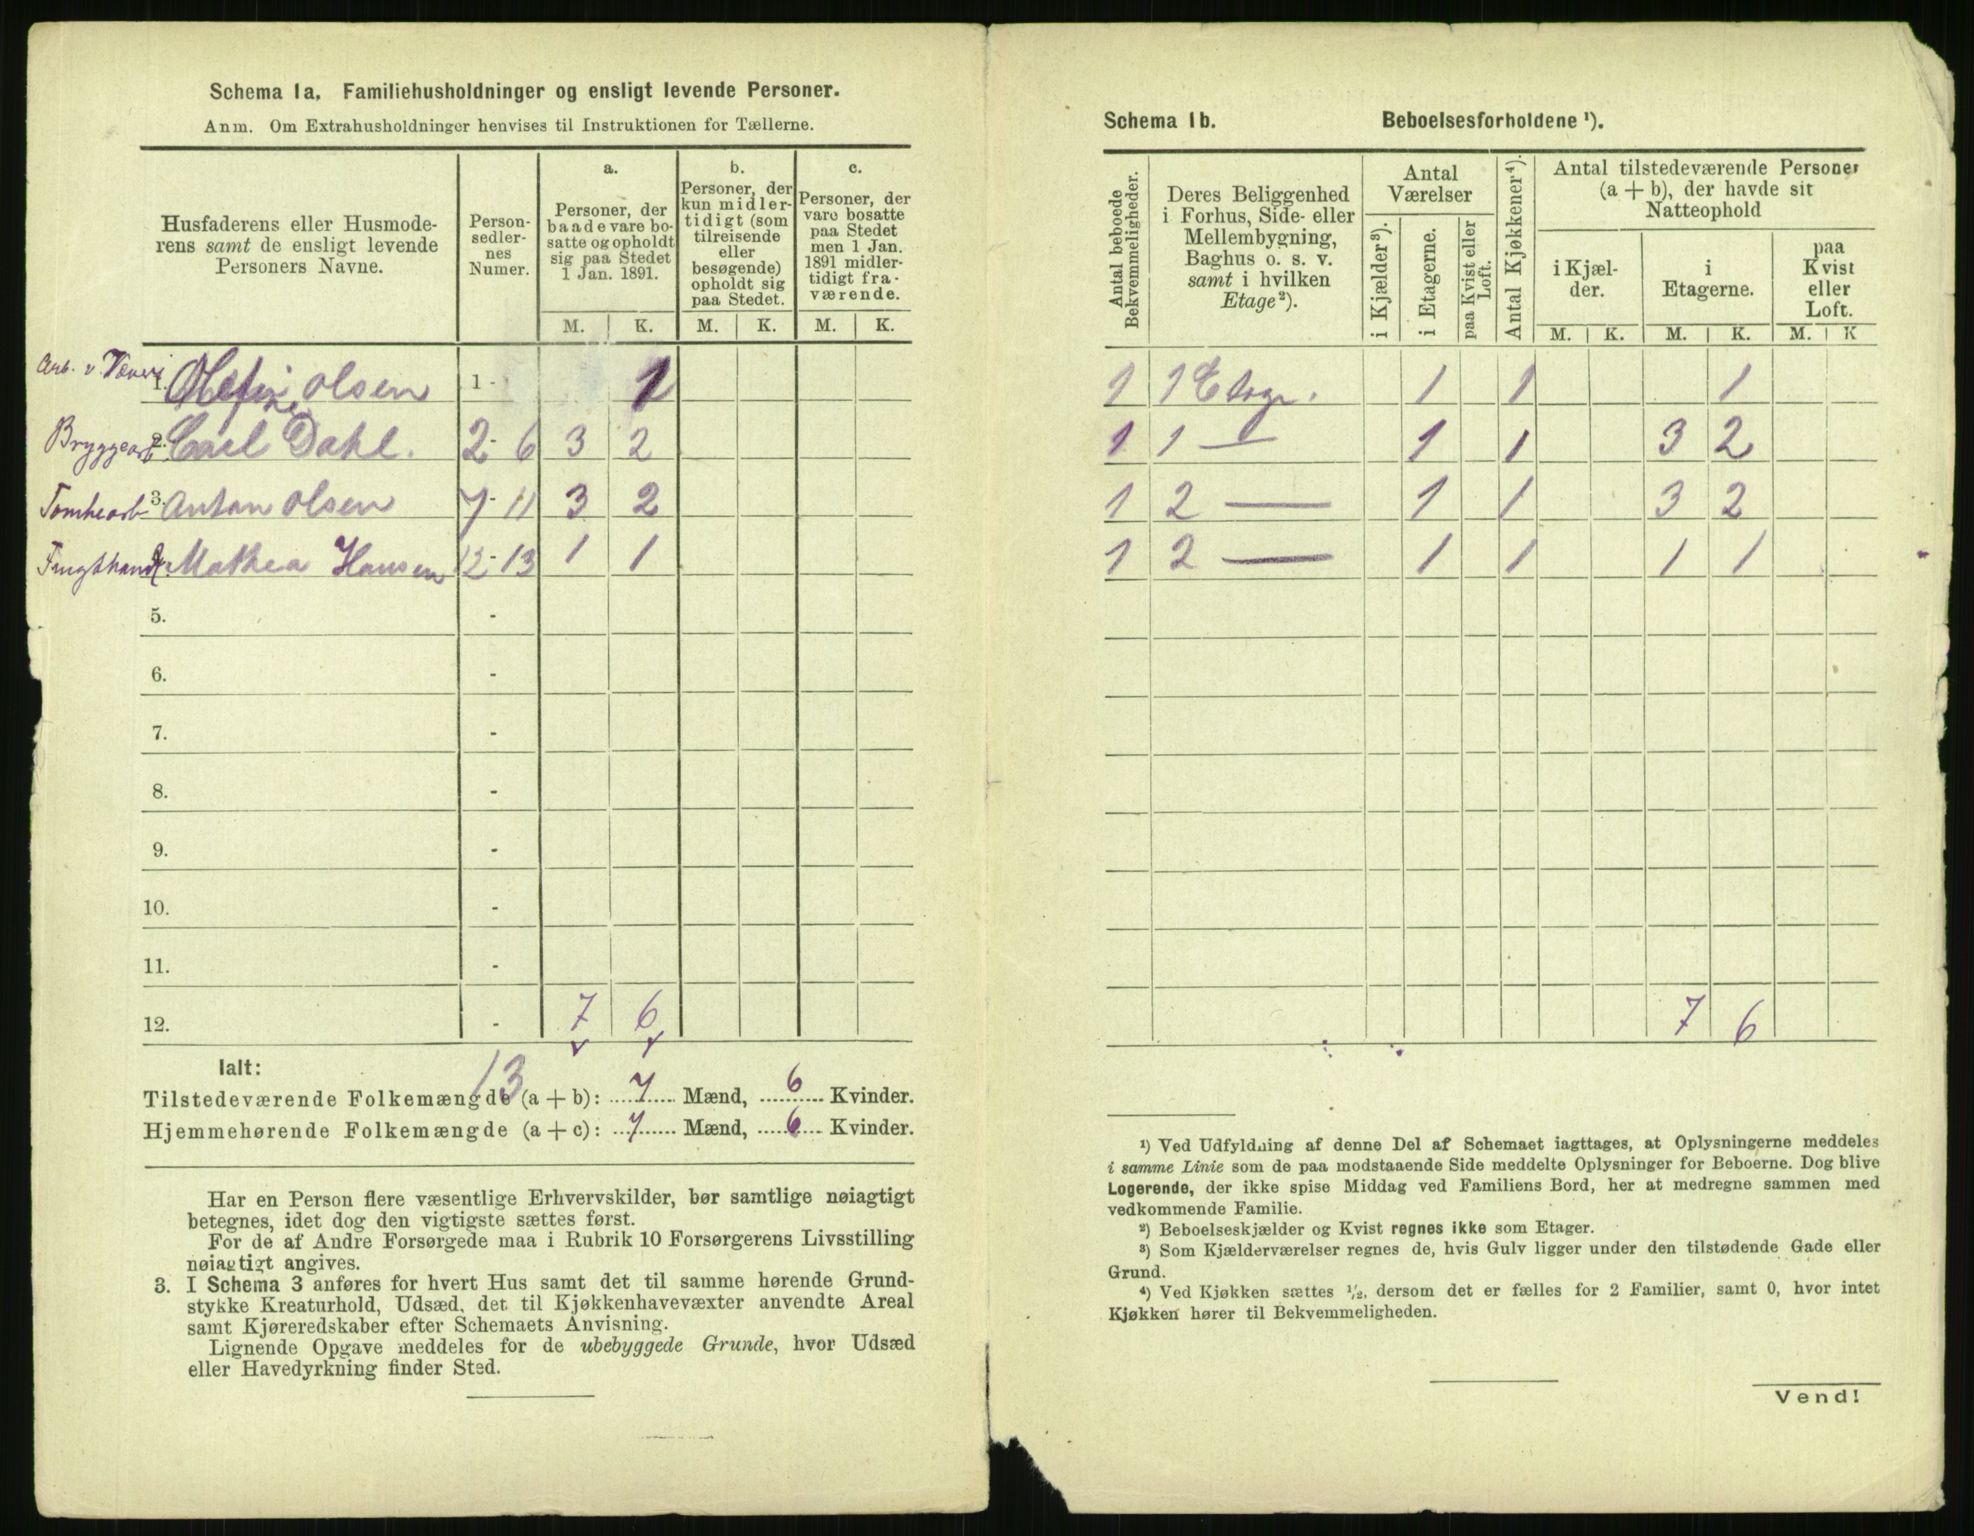 Schema 1a. Familiehusholdninger og ensligt levende Personer.
Anm. Om Extrahusholdninger henvises til Instruktionen for Tællerne.
Husfaderens eller Husmoderens samt de ensligt levende Personers Navne.
Personsedlernes Numer.
a. Personer, der baade vare bosatte og opholdt sig paa Stedet 1 Jan. 1891.
b. Personer, der kun midlertidigt (som tilreisende eller besøgende) opholdt sig paa Stedet.
c. Personer, der vare bosatte paa Stedet men 1 Jan. 1891 midlertidigt fraværende.
M. K. M. K. M. K.
Arb. v. Væveri 1. Olefine Olsen 1 - 1
Bryggearb. 2. Carl Dahl. 2 - 6 3 2
Tomtearb 3. Anton Olsen 7 - 11 3 2
Frugthandl. Mathea Hansen 12 - 13 1 1
5. -
6. -
7. -
8. -
9. -
10. -
11. -
12. - 7 6
Ialt: 13
Tilstedeværende Folkemængde (a + b): 7 Mænd, 6 Kvinder.
Hjemmehørende Folkemængde (a + c): 7 Mænd, 6 Kvinder.
Har en Person flere væsentlige Erhvervskilder, bør samtlige nøiagtigt
betegnes, idet dog den vigtigste sættes først.
For de af Andre Forsørgede maa i Rubrik 10 Forsørgerens Livsstilling
nøiagtigt angives.
3. I Schema 3 anføres for hvert Hus samt det til samme hørende Grund-
stykke Kreaturhold, Udsæd, det til Kjøkkenhavevæxter anvendte Areal
samt Kjøreredskaber efter Schemaets Anvisning.
Lignende Opgave meddeles for de ubebyggede Grunde, hvor Udsæd
eller Havedyrkning finder Sted.
Schema 1b. Beboelsesforholdene ¹).
Antal beboede Bekvemmeligheder.
Deres Beliggenhed i Forhus, Side- eller Mellembygning, Baghus o. s. v. samt i hvilken Etage ²).
Antal Værelser
i Kjælder ³). i Etagerne. paa Kvist eller Loft.
Antal Kjøkkener ⁴).
Antal tilstedeværende Personer (a + b), der havde sit Natteophold
i Kjælder. i Etagerne. paa Kvist eller Loft.
M. K. M. K. M. K
1 1 Etage. 1 1 1
1 1 — 1 1 3 2
1 2 — 1 1 3 2
1 2 — 1 1 1 1
7 6
¹) Ved Udfyldning af denne Del af Schemaet iagttages, at Oplysningerne meddeles
i samme Linie som de paa modstaaende Side meddelte Oplysninger for Beboerne. Dog blive
Logerende, der ikke spise Middag ved Familiens Bord, her at medregne sammen med
vedkommende Familie.
²) Beboelseskjælder og Kvist regnes ikke som Etager.
³) Som Kjælderværelser regnes de, hvis Gulv ligger under den tilstødende Gade eller
Grund.
⁴) Ved Kjøkken sættes ½, dersom det er fælles for 2 Familier, samt 0, hvor intet
Kjøkken hører til Bekvemmeligheden.
Vend!